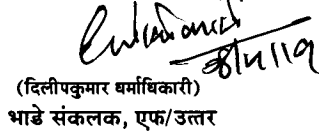 (दिलीपकुमार धर्माधिकारी)
भाडे संकलक, एफ/उत्तर